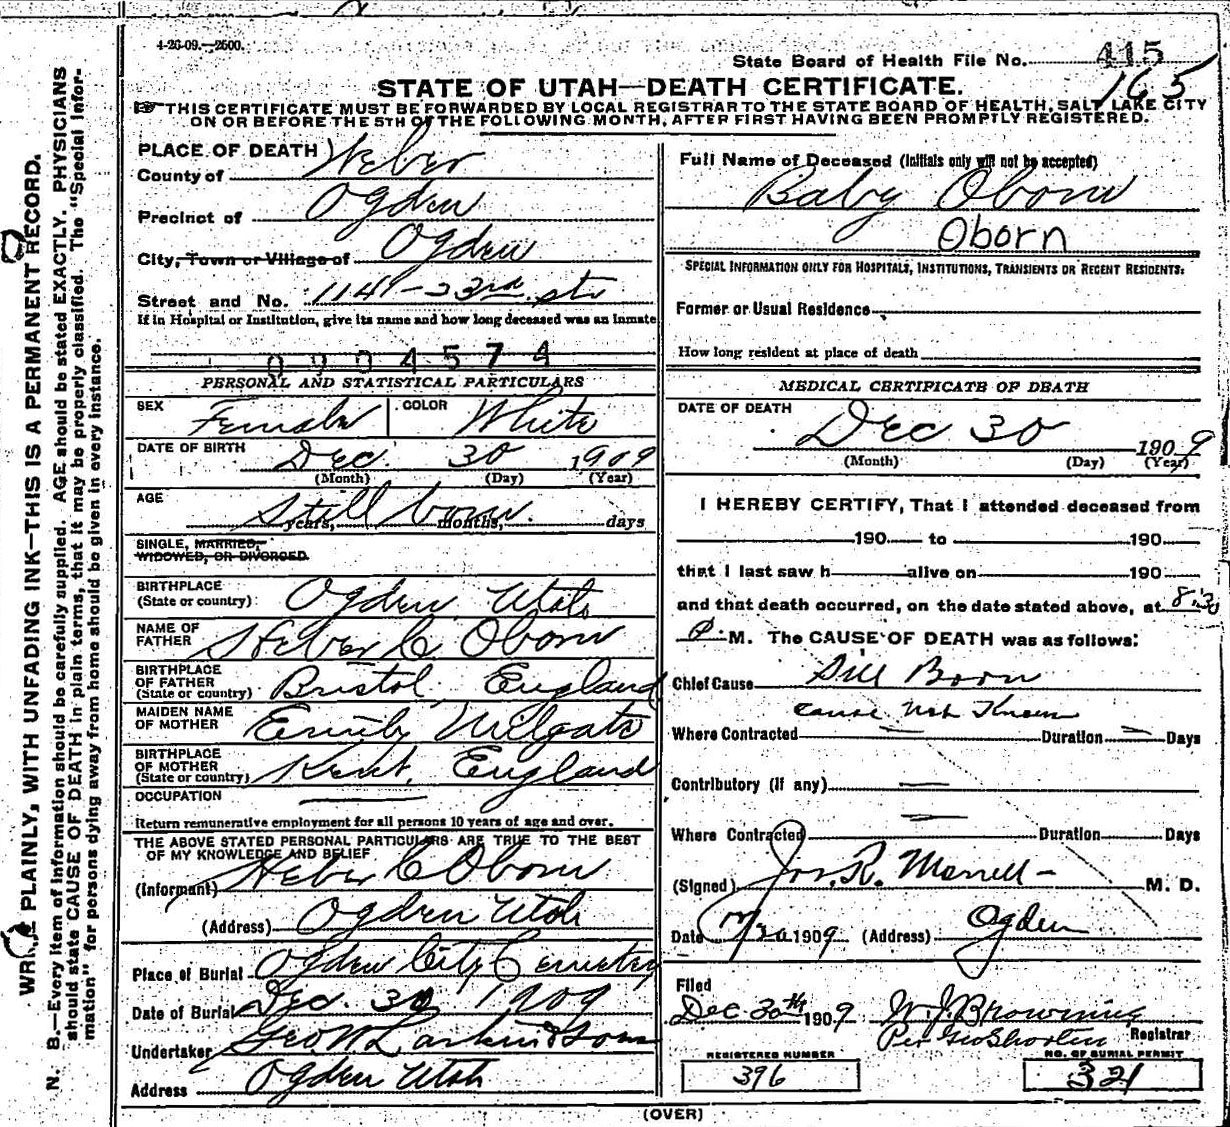 4-26-09.—2500.
State Board of Health File No. 415
165
STATE OF UTAH—DEATH CERTIFICATE.
THIS CERTIFICATE MUST BE FORWARDED BY LOCAL REGISTRAR TO THE STATE BOARD OF HEALTH, SALT LAKE CITY
ON OR BEFORE THE 5TH OF THE FOLLOWING MONTH, AFTER FIRST HAVING BEEN PROMPTLY REGISTERED.
PLACE OF DEATH
County of Weber
Precinct of Ogden
City, Town or Village of Ogden
Street and No. 1141-23rd str
If in Hospital or Institution, give its name and how long deceased was an Inmate
0904574
PERSONAL AND STATISTICAL PARTICULARS
SEX Female COLOR White
DATE OF BIRTH Dec. 30 1909
(Month) (Day) (Year)
AGE Still born
years, months, days
SINGLE, MARRIED,
WIDOWED, OR DIVORCED
BIRTHPLACE
(State or country) Ogden Utah
NAME OF
FATHER Heber C Oborn
BIRTHPLACE
OF FATHER
(State or country) Bristol, England
MAIDEN NAME
OF MOTHER Emily Milgate
BIRTHPLACE
OF MOTHER
(State or country) Kent, England
OCCUPATION
Return remunerative employment for all persons 10 years of age and over.
THE ABOVE STATED PERSONAL PARTICULARS ARE TRUE TO THE BEST
OF MY KNOWLEDGE AND BELIEF
(Informant) Heber C Oborn
(Address) Ogden Utah
Place of Burial Ogden City Cemetery
Date of Burial Dec. 30 1909
Undertaker Geo W Larkin & Sons
Address Ogden Utah
Full Name of Deceased (Initials only will not be accepted)
Baby Oborn
Oborn
SPECIAL INFORMATION ONLY FOR HOSPITALS, INSTITUTIONS, TRANSIENTS OR RECENT RESIDENTS:
Former or Usual Residence
How long resident at place of death
MEDICAL CERTIFICATE OF DEATH
DATE OF DEATH
Dec 30 1909
(Month) (Day) (Year)
I HEREBY CERTIFY, That I attended deceased from
190 to 190
that I last saw h alive on 190
and that death occurred, on the date stated above, at 8:30
P. M. The CAUSE OF DEATH was as follows:
Chief Cause Still Born
cause Not Known
Where Contracted Duration Days
Contributory (if any)
Where Contracted Duration Days
(Signed) Jos. R. Morrell M. D.
Date 1909 (Address) Ogden
Filed
Dec 30th 1909 W. J. Browning
Per Geo Shorten Registrar
REGISTERED NUMBER
396
NO. OF BURIAL PERMIT
321
(OVER)
WRITE PLAINLY, WITH UNFADING INK—THIS IS A PERMANENT RECORD.
N. B.—Every item of information should be carefully supplied. AGE should be stated EXACTLY. PHYSICIANS
should state CAUSE OF DEATH in plain terms, that it may be properly classified. The "Special Infor-
mation" for persons dying away from home should be given in every instance.